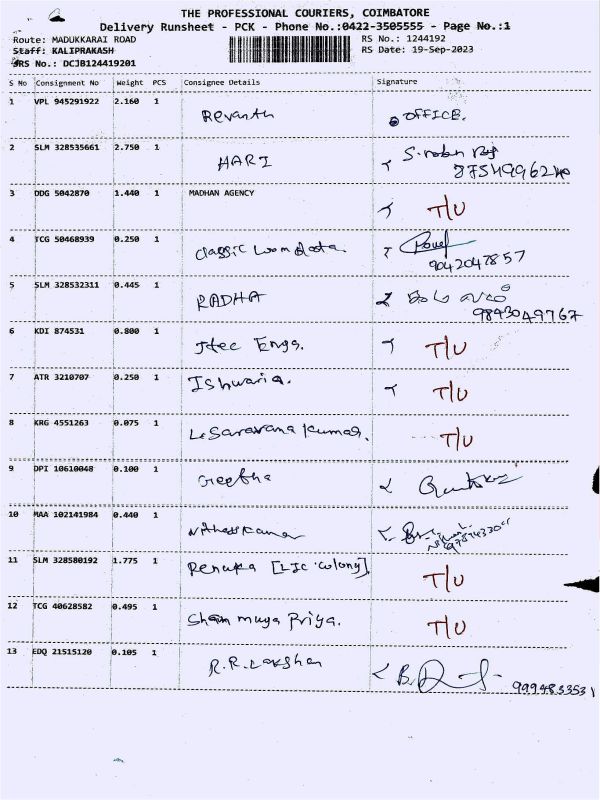 THE PROFESSIONAL COURIERS, COIMBATORE
Delivery Runsheet - PCK - Phone No.:0422-3505555 - Page No.:1
Route: MADUKKARAI ROAD RS No.: 1244192
Staff: KALIPRAKASH RS Date: 19-Sep-2023
SRS No.: DCJB124419201
S No Consignment No Weight PCS Consignee Details Signature
1 VPL 945291922 2.160 1 Revanth OFFICE.
2 SLM 328535661 2.750 1 HARI
8754996240
3 DDG 5042870 1.440 1 MADHAN AGENCY T/U
4 TCG 50468939 0.250 1 Classic
9042047857
5 SLM 328532311 0.445 1 RADHA
9843049767
6 KDI 874531 0.800 1 Itec Engs. T/U
7 ATR 3210707 0.250 1 Ishwaria. T/U
8 KRG 4551263 0.075 1 L. Saravana Kumar. T/U
9 DPI 10610048 0.100 1 Geetha
10 MAA 102141984 0.440 1
11 SLM 328580192 1.775 1 Renuka [LIC colony] T/U
12 TCG 40628582 0.495 1 Shan muga Priya. T/U
13 EDQ 21515120 0.105 1 R.R. Lakshan
9994833531